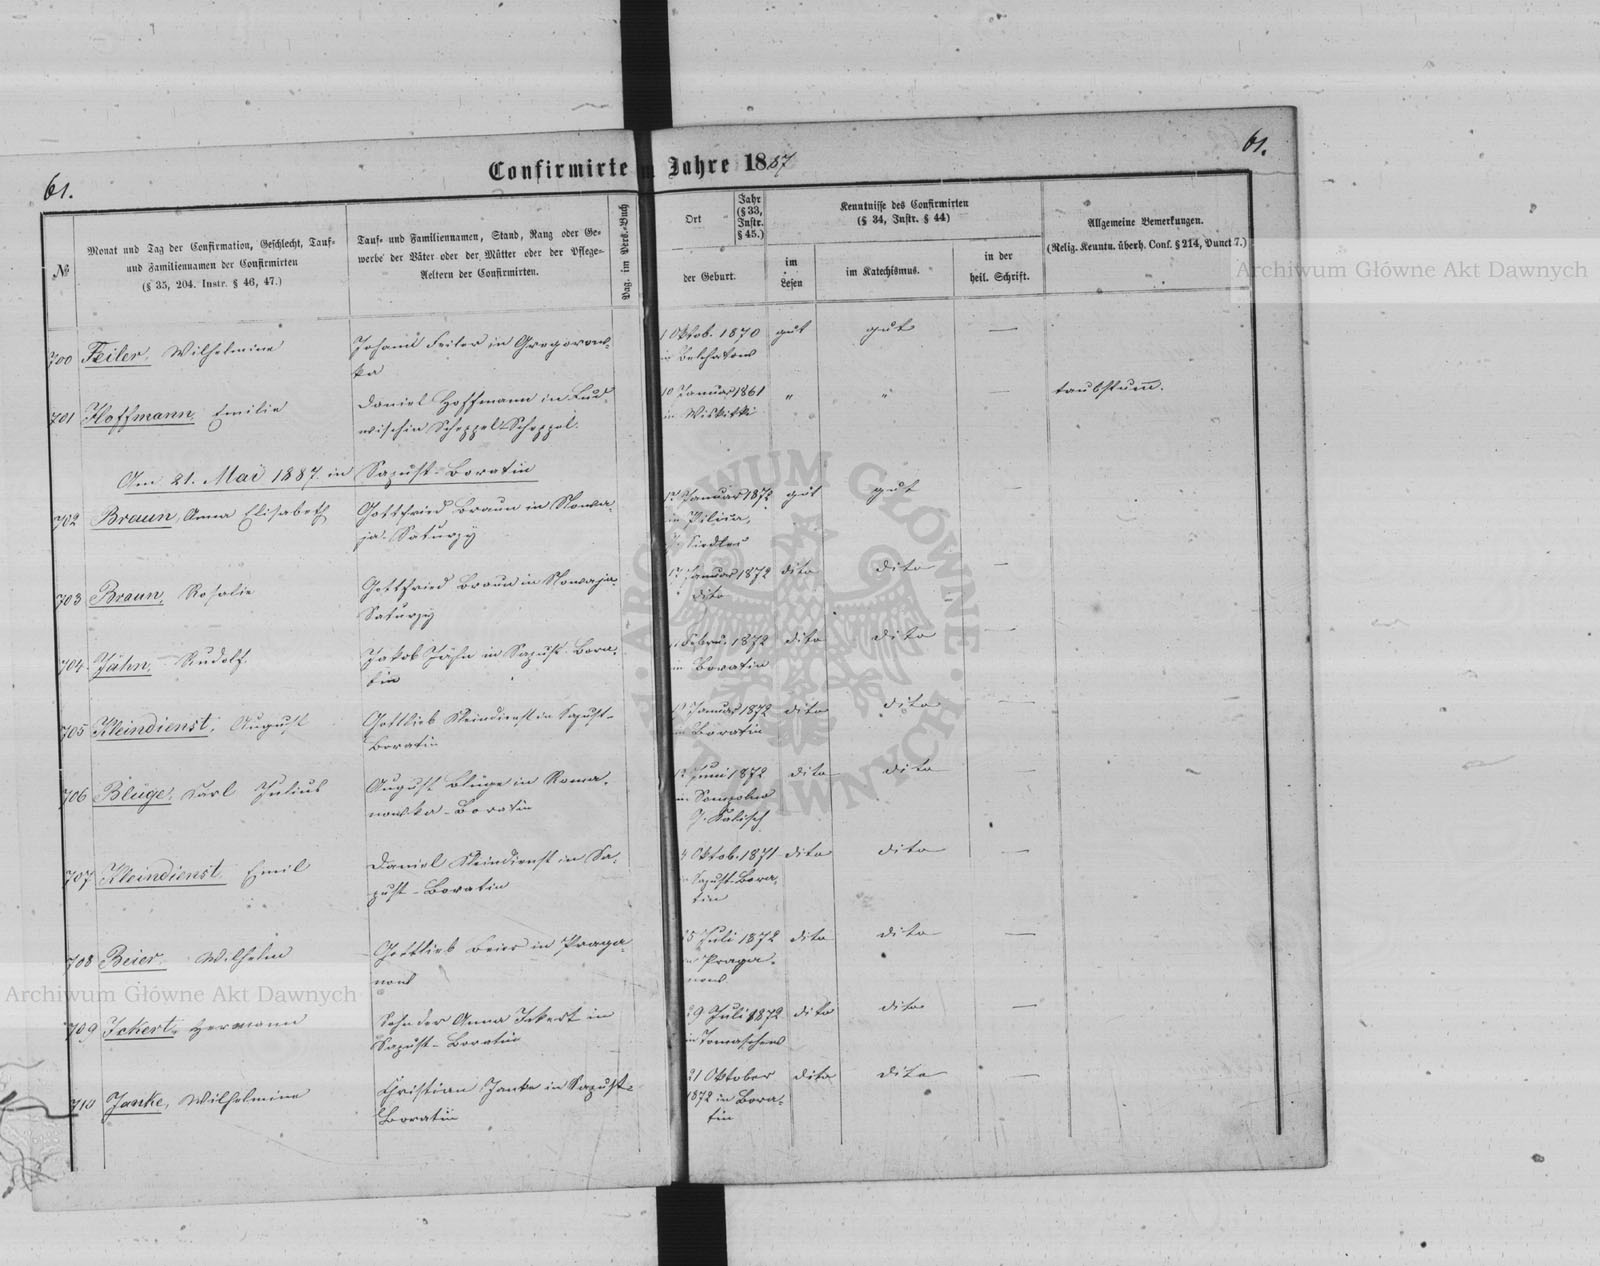 61.
61.
Confirmirte im Jahre 1887
№
Monat und Tag der Confirmation, Geschlecht, Tauf-
und Familiennamen der Confirmirten
(§ 35, 204. Instr. § 46, 47.)
Tauf- und Familiennamen, Stand, Rang oder Ge-
werbe der Väter oder der Mütter oder der Pflege-
Aeltern der Confirmirten.
Pag. im Pers.-Buch
Ort
Jahr
(§ 33,
Instr.
§ 45.)
der Geburt.
Kenntnisse des Confirmirten
(§ 34, Instr. § 44)
im
Lesen
im Katechismus.
in der
heil. Schrift.
Allgemeine Bemerkungen.
(Relig. Kenntn. überh. Conf. § 214, Punct 7.)
700 Feiler, Wilhelmine
Johann Feiler in Gregorow-
ka
1 Oktob. 1870
in Belchatow
gut gut —
701 Hoffmann, Emilie
Daniel Hoffmann in Lud-
wischin
10 Januar 1861
in Wiskitki
" " —
taubstumm.
Am 21. Mai 1887. in Sapust-Boratin
702 Braun, Anna Elisabeth
Gottfried Braun in Nowa-
ja-Saturzy
Januar 1872
in Pilica,
Siedlec
gut gut —
703 Braun, Rosalie
Gottfried Braun in Nowaja-
Saturzy
Januar 1872
dito
dito dito —
704 Jähn, Rudolf.
Jakob Jähn in Sapust-Bora-
tin
Febru. 1872
in Boratin
dito dito —
705 Kleindienst, August
Gottlieb Kleindienst in Sapust-
Boratin
Januar 1872
in Boratin
dito dito —
706 Blüge, Carl Julius
August Blüge in Roma-
nowka-Boratin
Juni 1872
in Sompolno
G. Kalisch
dito dito —
707 Kleindienst Emil
Daniel Kleindienst in Sa-
pust-Boratin
4 Oktob. 1871
in Sapust-Bora-
tin
dito dito —
708 Beier, Wilhelm
Gottlieb Beier in Praga-
now
25 Juli 1872
in Praga-
now
dito dito —
709 Ickert, Hermann
Sohn der Anna Ickert in
Sapust-Boratin
29 Juli 1872
in Tomaschew
dito dito —
710 Janke, Wilhelmine
Christian Janke in Sapust-
Boratin
21 Oktober
1872 in Bora-
tin
dito dito —
Archiwum Główne Akt Dawnych
Archiwum Główne Akt Dawnych
ARCHIWUM GŁÓWNE AKT DAWNYCH